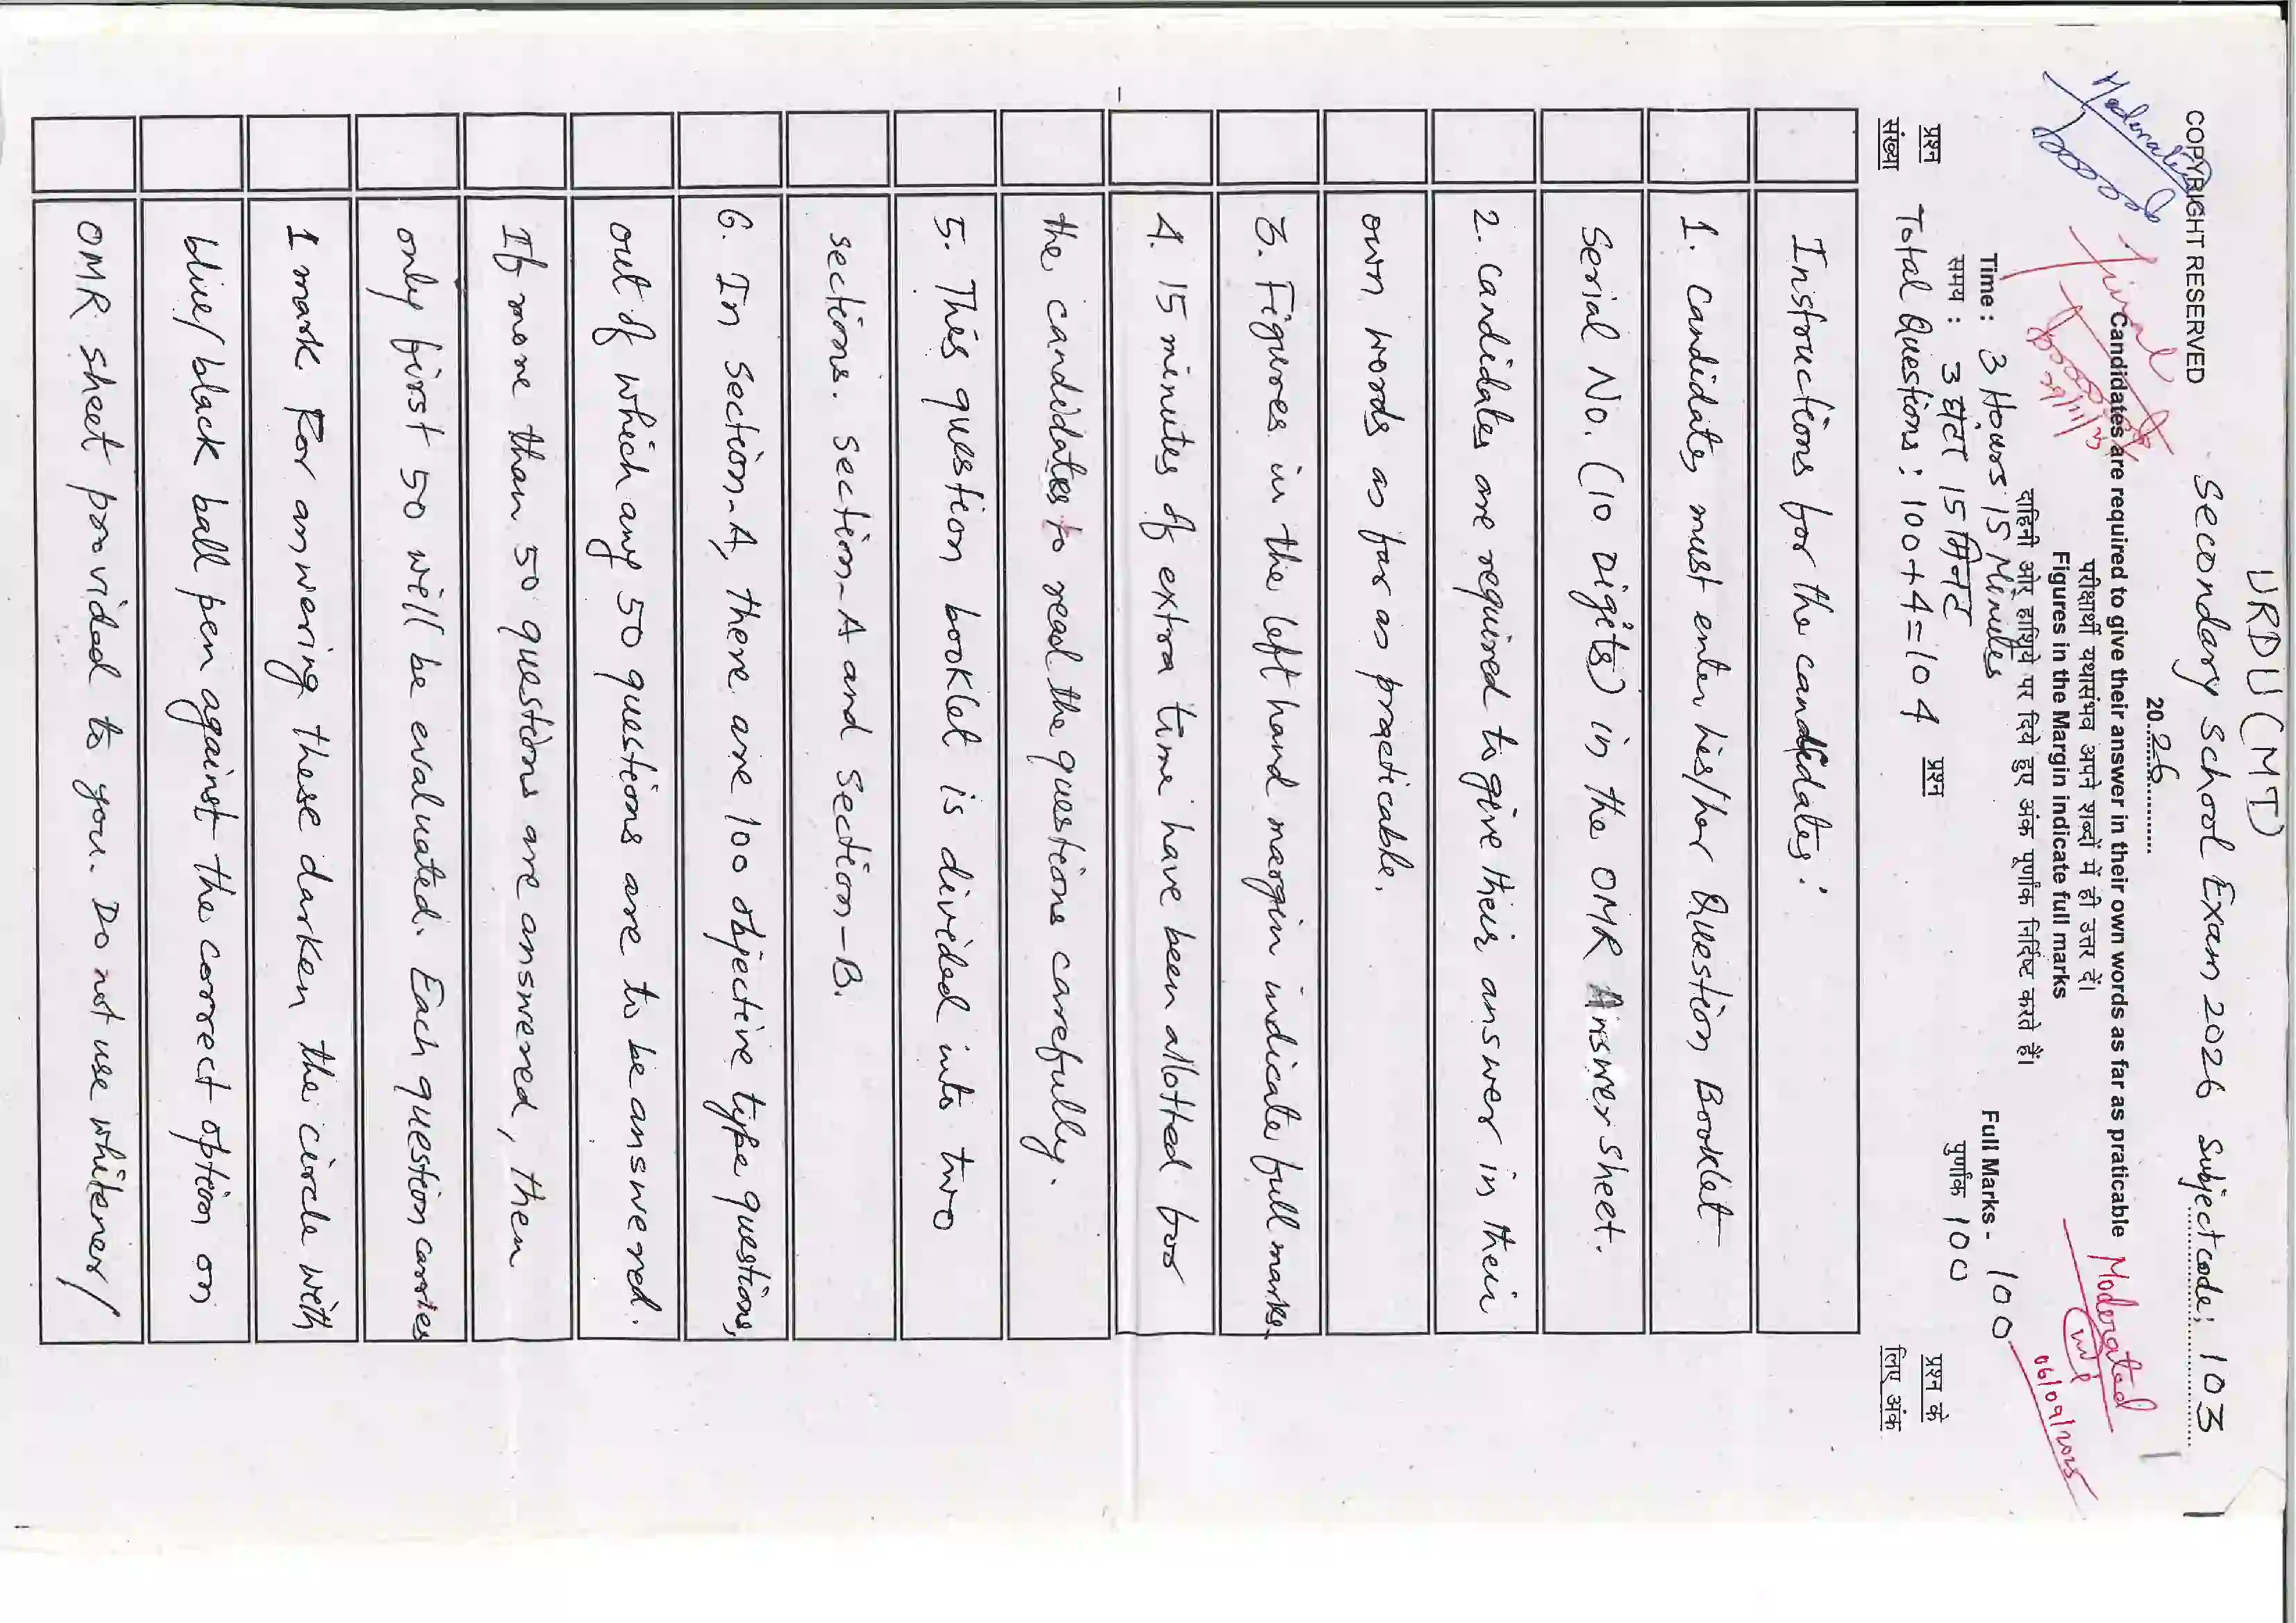 URDU (MT)
COPYRIGHT RESERVED
Secondary School Exam 2026 Subject code: 103
20.26
Candidates are required to give their answer in their own words as far as praticable
परीक्षार्थी यथासंभव अपने शब्दों में ही उत्तर दें।
Figures in the Margin indicate full marks
दाहिनी ओर हाशिये पर दिये हुए अंक पूर्णांक निर्दिष्ट करते हैं।
Moderated
06/09/2025
Final
Time: 3 Hours 15 Minutes
Full Marks- 100
समय: 3 घंटा 15 मिनट
पूर्णांक 100
Total Questions: 100+4=104
प्रश्न संख्या
प्रश्न
प्रश्न के लिए अंक
Instructions for the candidates:
1. Candidates must enter his/her Question Booklet
Serial No. (10 Digits) in the OMR Answer sheet.
2. Candidates are required to give their answer in their
own words as far as practicable.
3. Figures in the left hand margin indicate full marks.
4. 15 minutes of extra time have been allotted for
the candidates to read the questions carefully.
5. This question booklet is divided into two
sections. Section-A and Section-B.
6. In Section-A, there are 100 objective type questions,
out of which any 50 questions are to be answered.
If more than 50 questions are answered, then
only first 50 will be evaluated. Each question carries
1 mark For answering these darken the circle with
blue/black ball pen against the correct option on
OMR sheet provided to you. Do not use whitener/